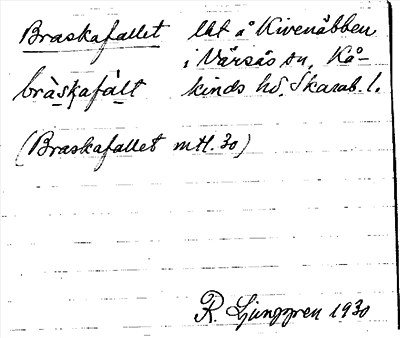 Braskafallet lht å Kivenäbben
i Värsås sn, Kå-
bràskafàlt kinds hd. Skarab. l.
(Braskafallet mtl. 30)
R. Ljunggren 1930